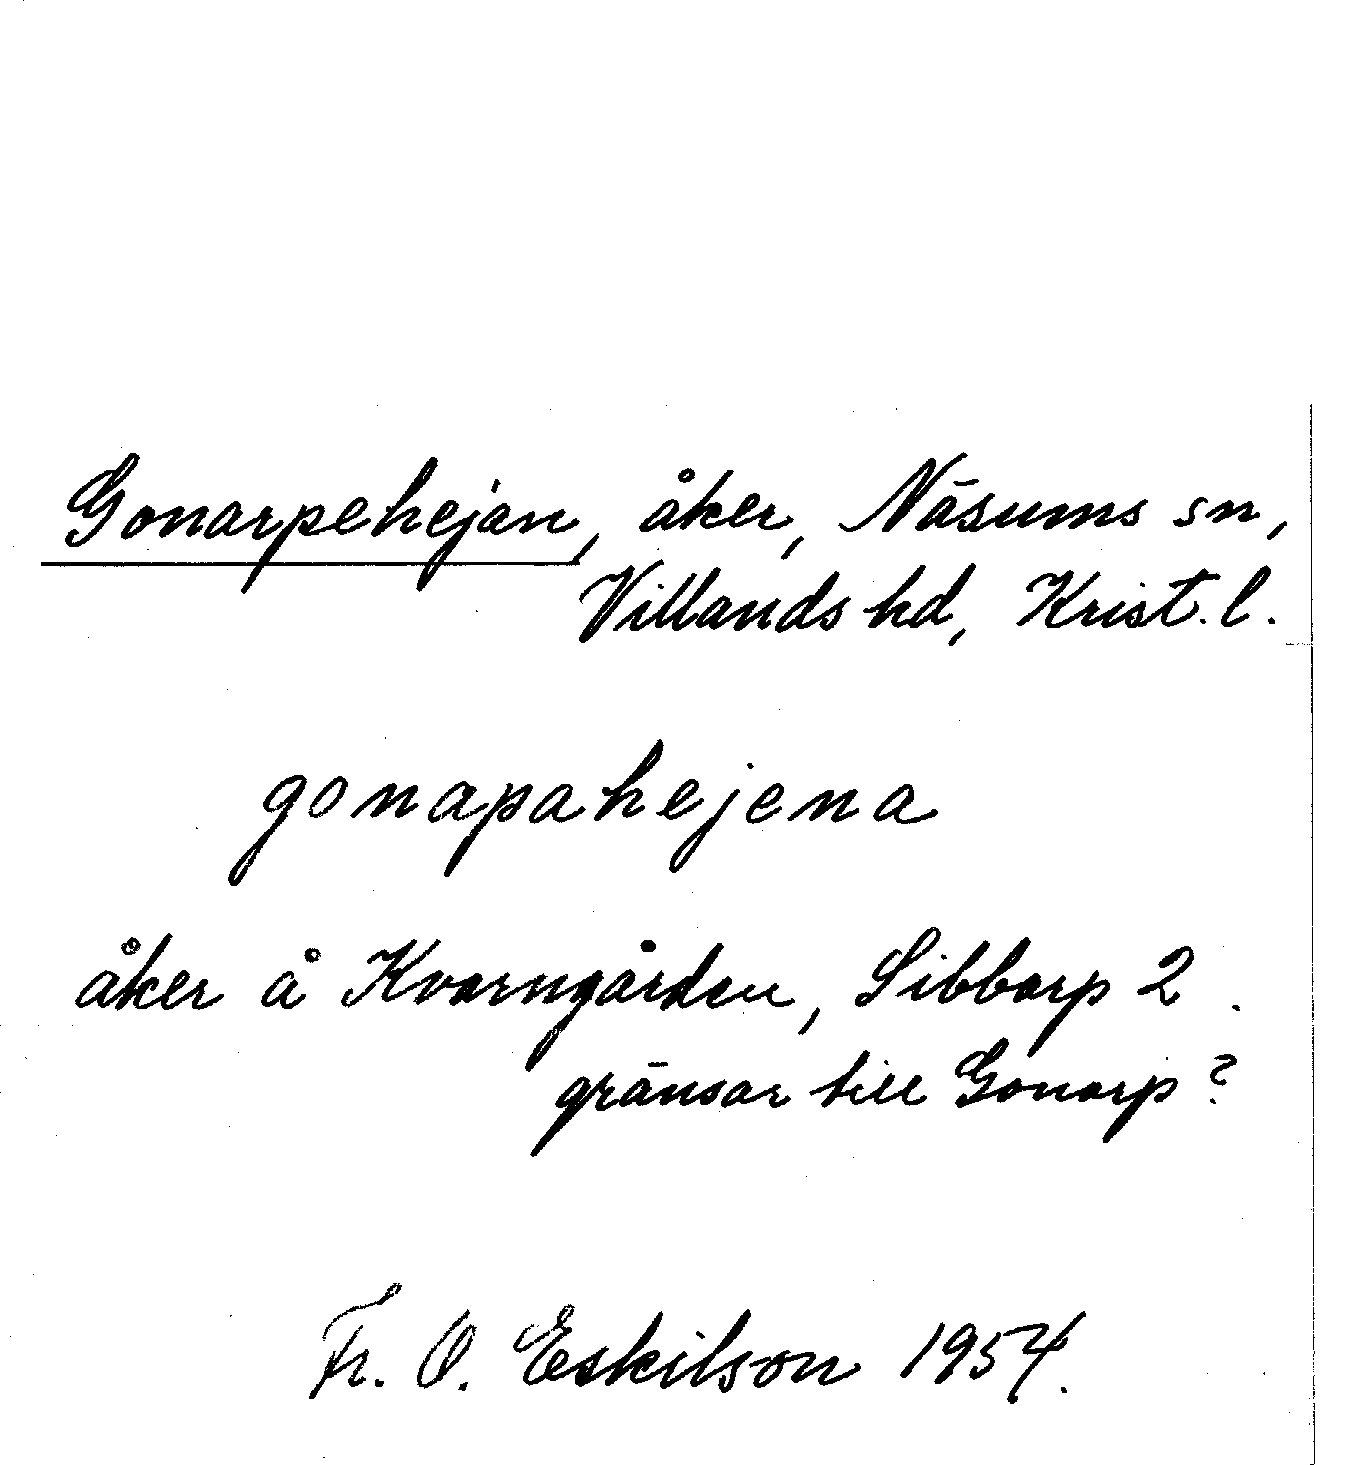 Gonarpehejan, åker, Näsums sn,
Villands hd, Krist. l.
gonapahejena
åker å Kvarngården, Sibbarp 2.
gränsar till Gonarp?
Fr. O. Eskilson 1954.